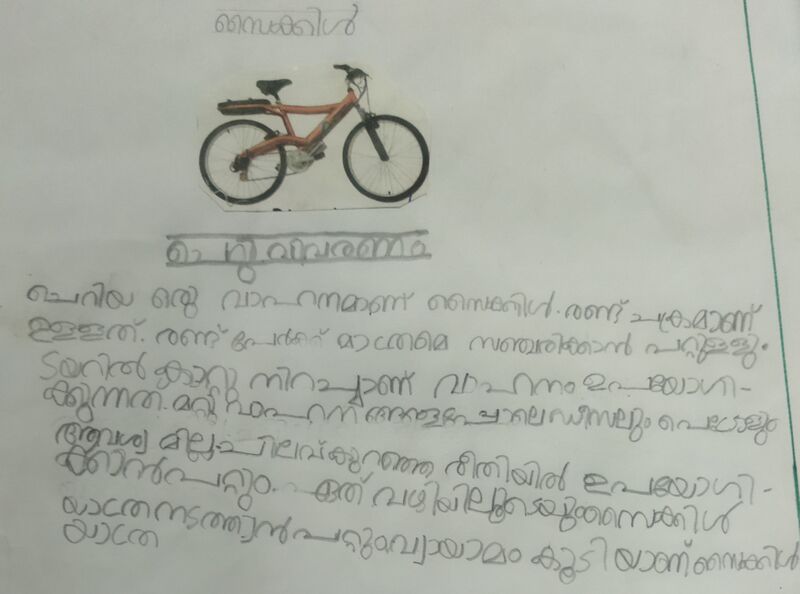 സൈക്കിൾ
ചെറു വിവരണം
ചെറിയ ഒരു വാഹനമാണ് സൈക്കിൾ. രണ്ട് ചക്രമാണ്
ഉള്ളത്. രണ്ട് പേർക്ക് മാത്രമെ സഞ്ചരിക്കാൻ പറ്റുള്ളു.
ടയറിൽ കാറ്റു നിറച്ചാണ് വാഹനം ഉപയോഗി-
ക്കുന്നത്. മറ്റു വാഹനങ്ങളെപ്പോലെ ഡീസലും പെട്രോളും
ആവശ്യമില്ല. ചിലവ് കുറഞ്ഞ രീതിയിൽ ഉപയോഗി-
ക്കാൻ പറ്റും. ഏത് വഴിയിലൂടെയും സൈക്കിൾ
യാത്ര നടത്താൻ പറ്റും വ്യായാമം കൂടിയാണ് സൈക്കിൾ
യാത്ര